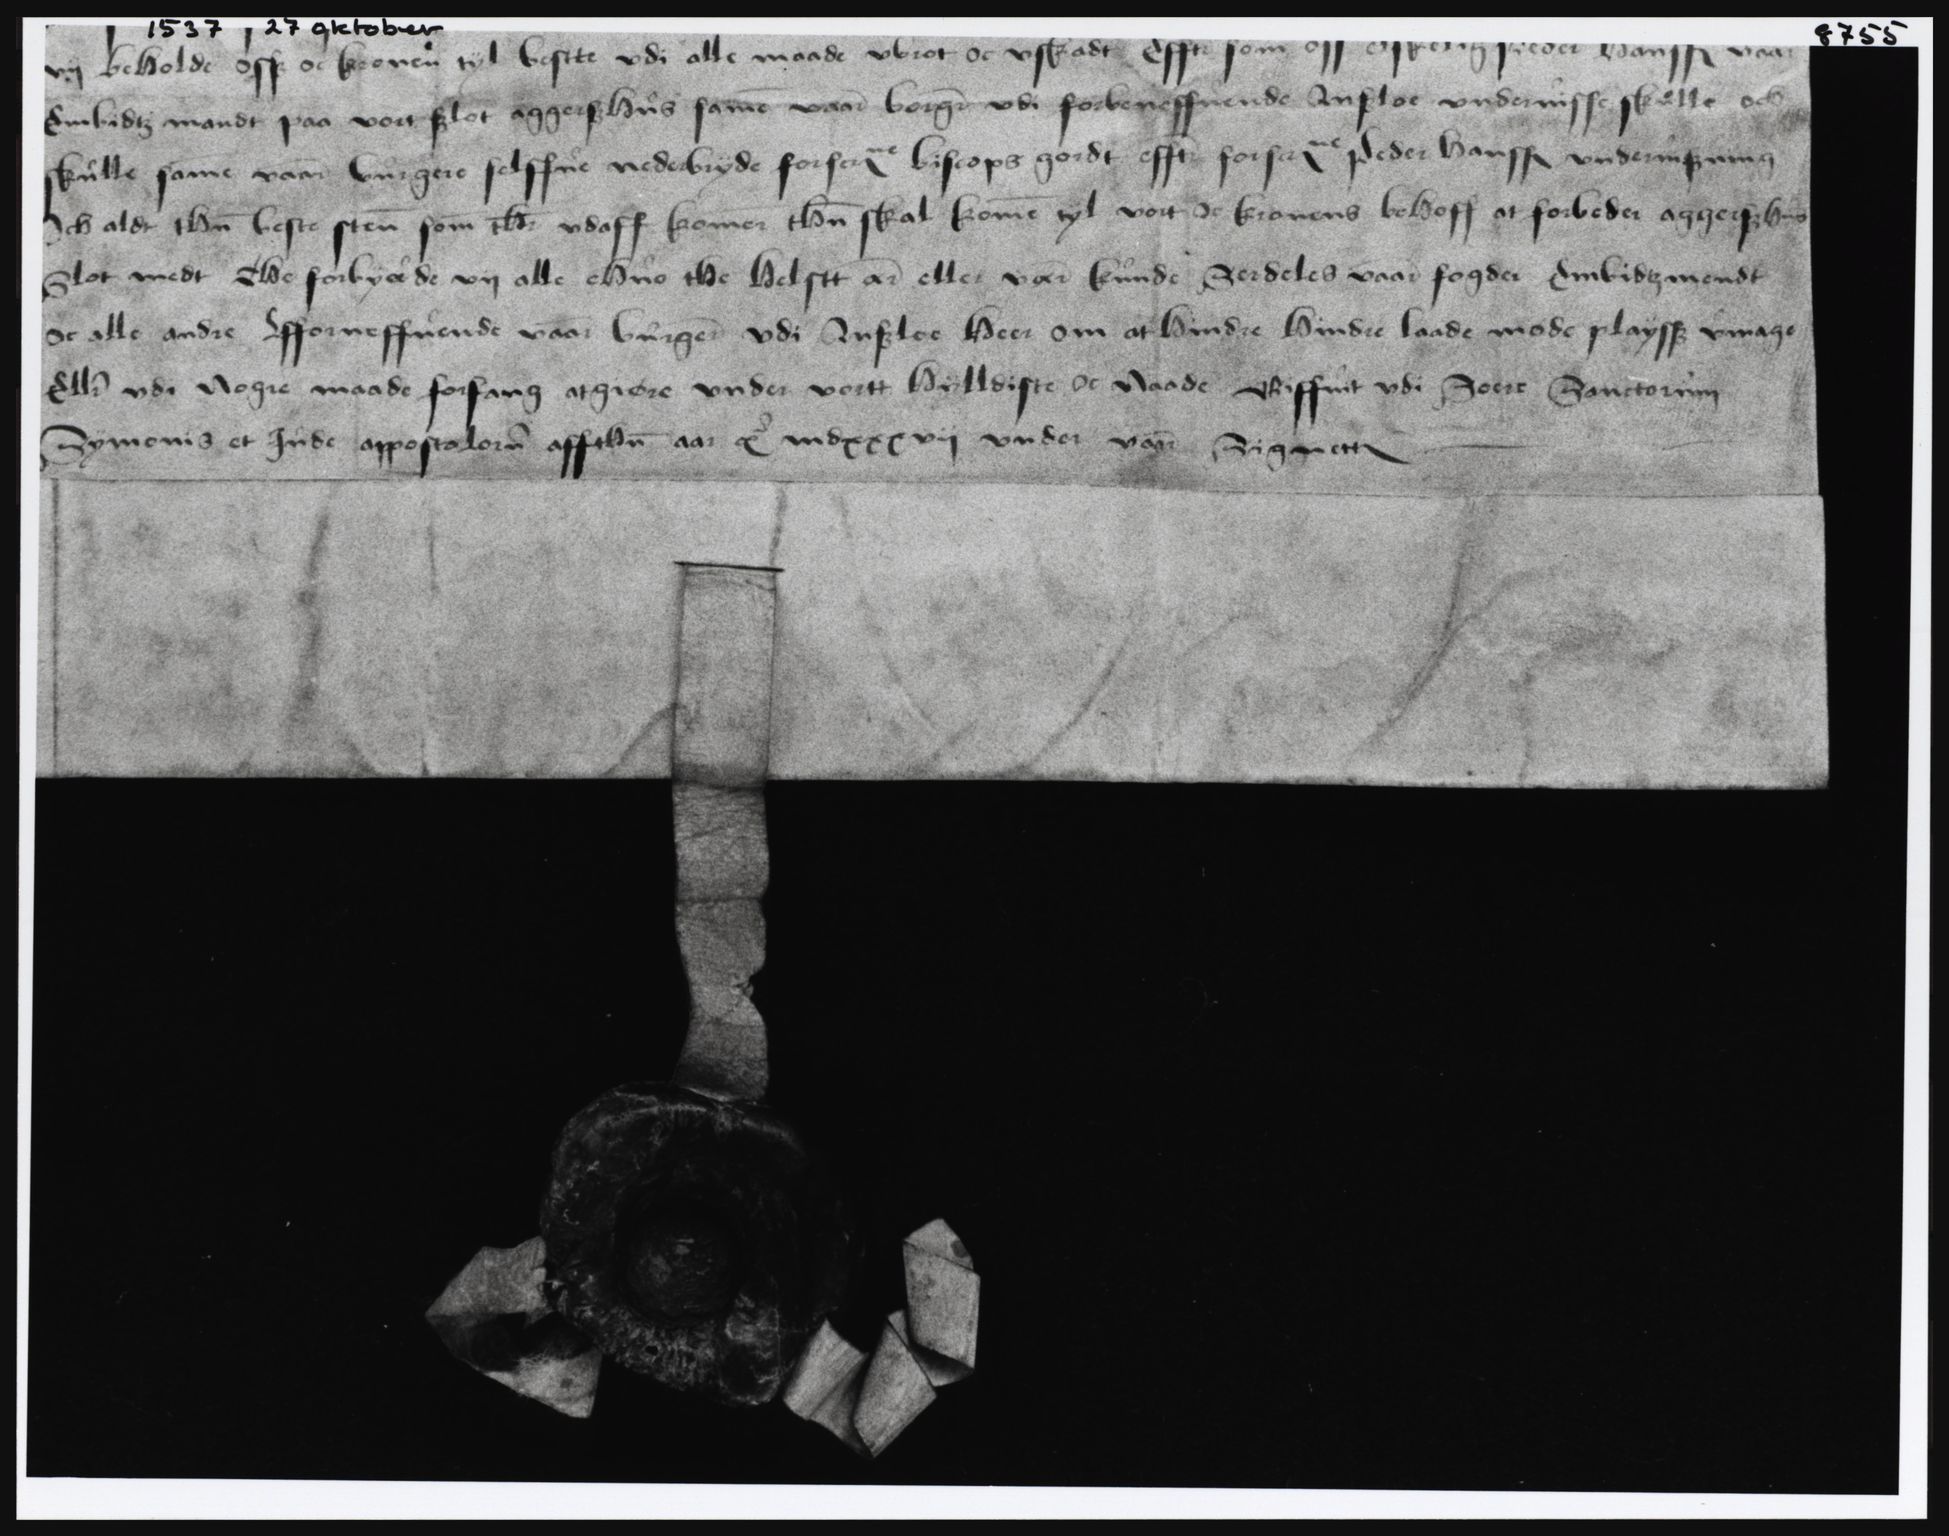 1537 27 oktober 8755
vij beholde oss oc kronen tyl bestte vdi alle maade vbrot oc vskadt Efftr som oss elskelig Peder Hanssn vaar
Embidtz mandt paa vort slot aggerszhus same vaar borger vdi forbeneffnende Anszloe vnderuisse skulle och
skulle same vaar burgere selffue nederbryde forscrne biscops gordt efftr forscrne Peder hanssn vnderuiszning
Och aldt thn beste sten som thr vdaff komer thn skal kome tyl vort oc kronens behoff at forbeder aggerszhus
Slot medt Thi forbyde vij alle ehuo the helstt ær eller vær kunde Serdeles vaar fogder Embidtzmendt
oc alle andre fforneffnende vaar burger vdi Anszloe heer om at hindre hindre laade mode playsz vmage
Ellr vdi nogre maade forfang at giøre vnder vortt hylldiste oc naade Giffuit vdi Soere Sanctorum
Symonis et Jude appostolorum affthn aar mdxxxvij vnder vaar Signett